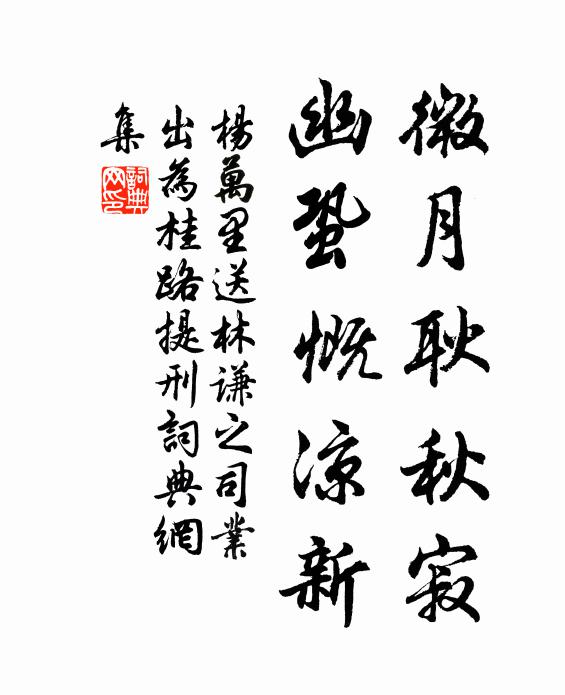 微月耿秋寂
幽蛩慨凉新
楊萬里送林谦之司業
出為桂路提刑詞典網
集
詞典
网印